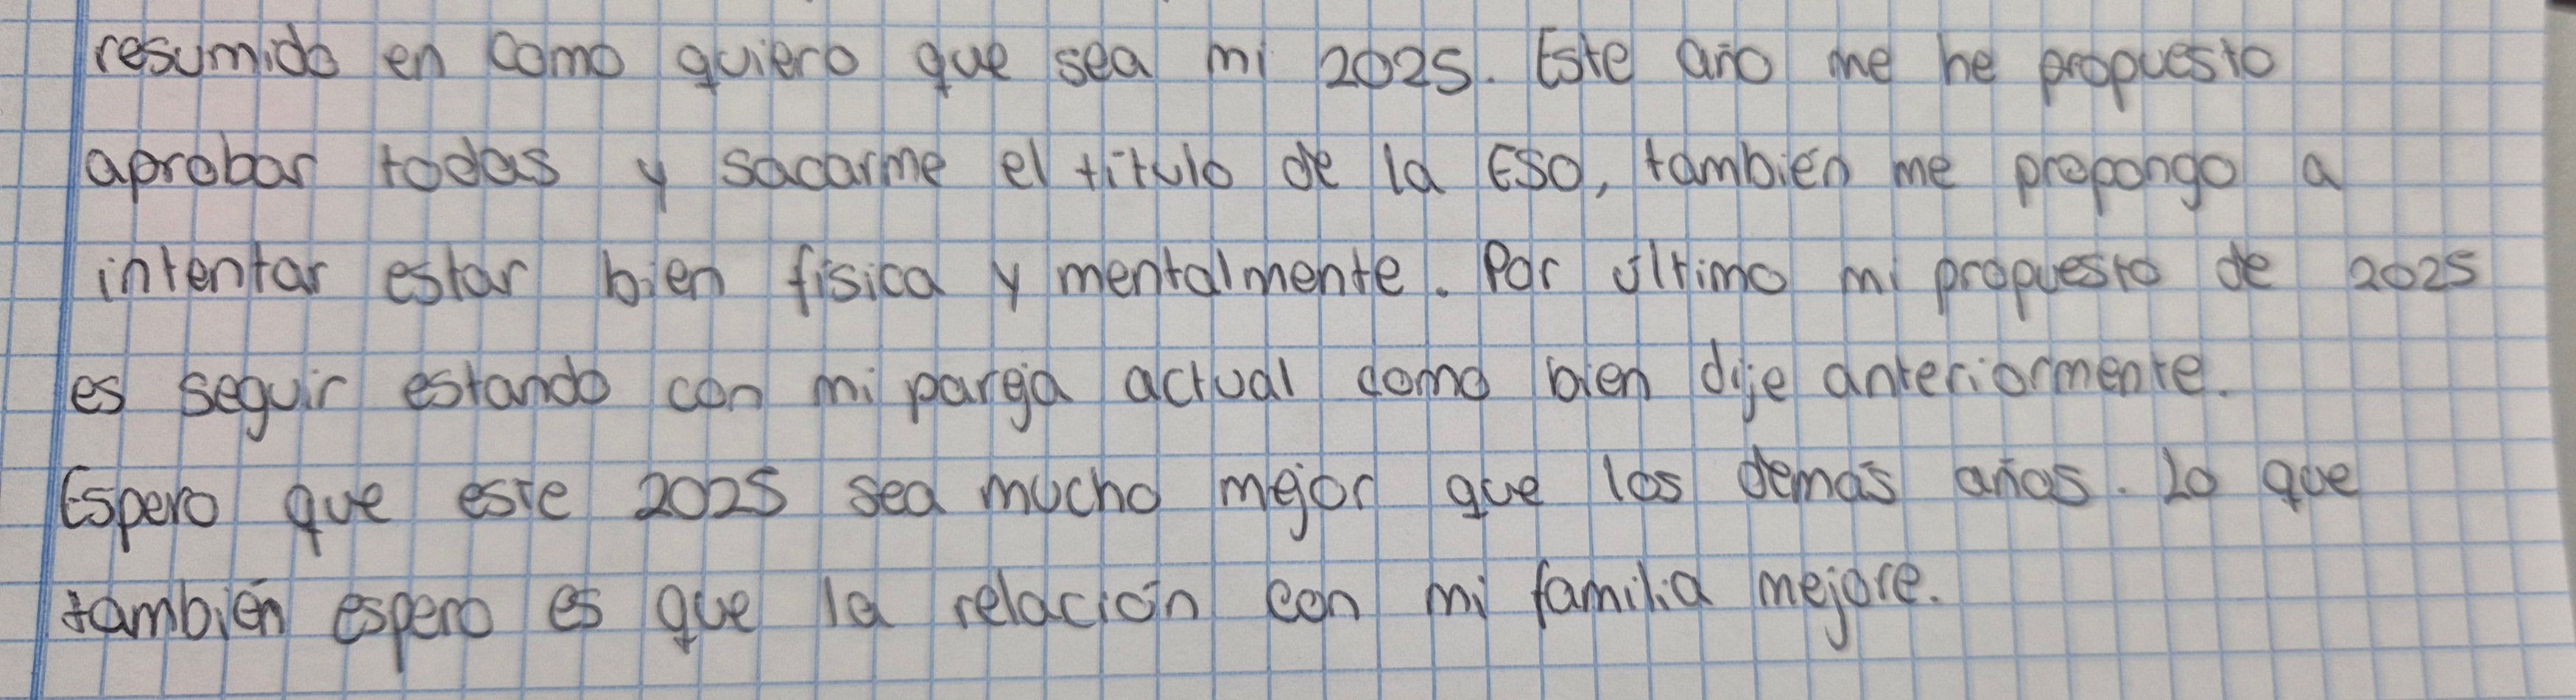 resumido en como quiero que sea mi 2025. Este año me he propuesto
aprobar todas y sacarme el titulo de la ESO, también me propongo a
intentar estar bien física y mentalmente. Por último mi propuesto de 2025
es seguir estando con mi pareja actual como bien dije anteriormente.
Espero que este 2025 sea mucho mejor que los demás años. Lo que
también espero es que la relación con mi familia mejore.